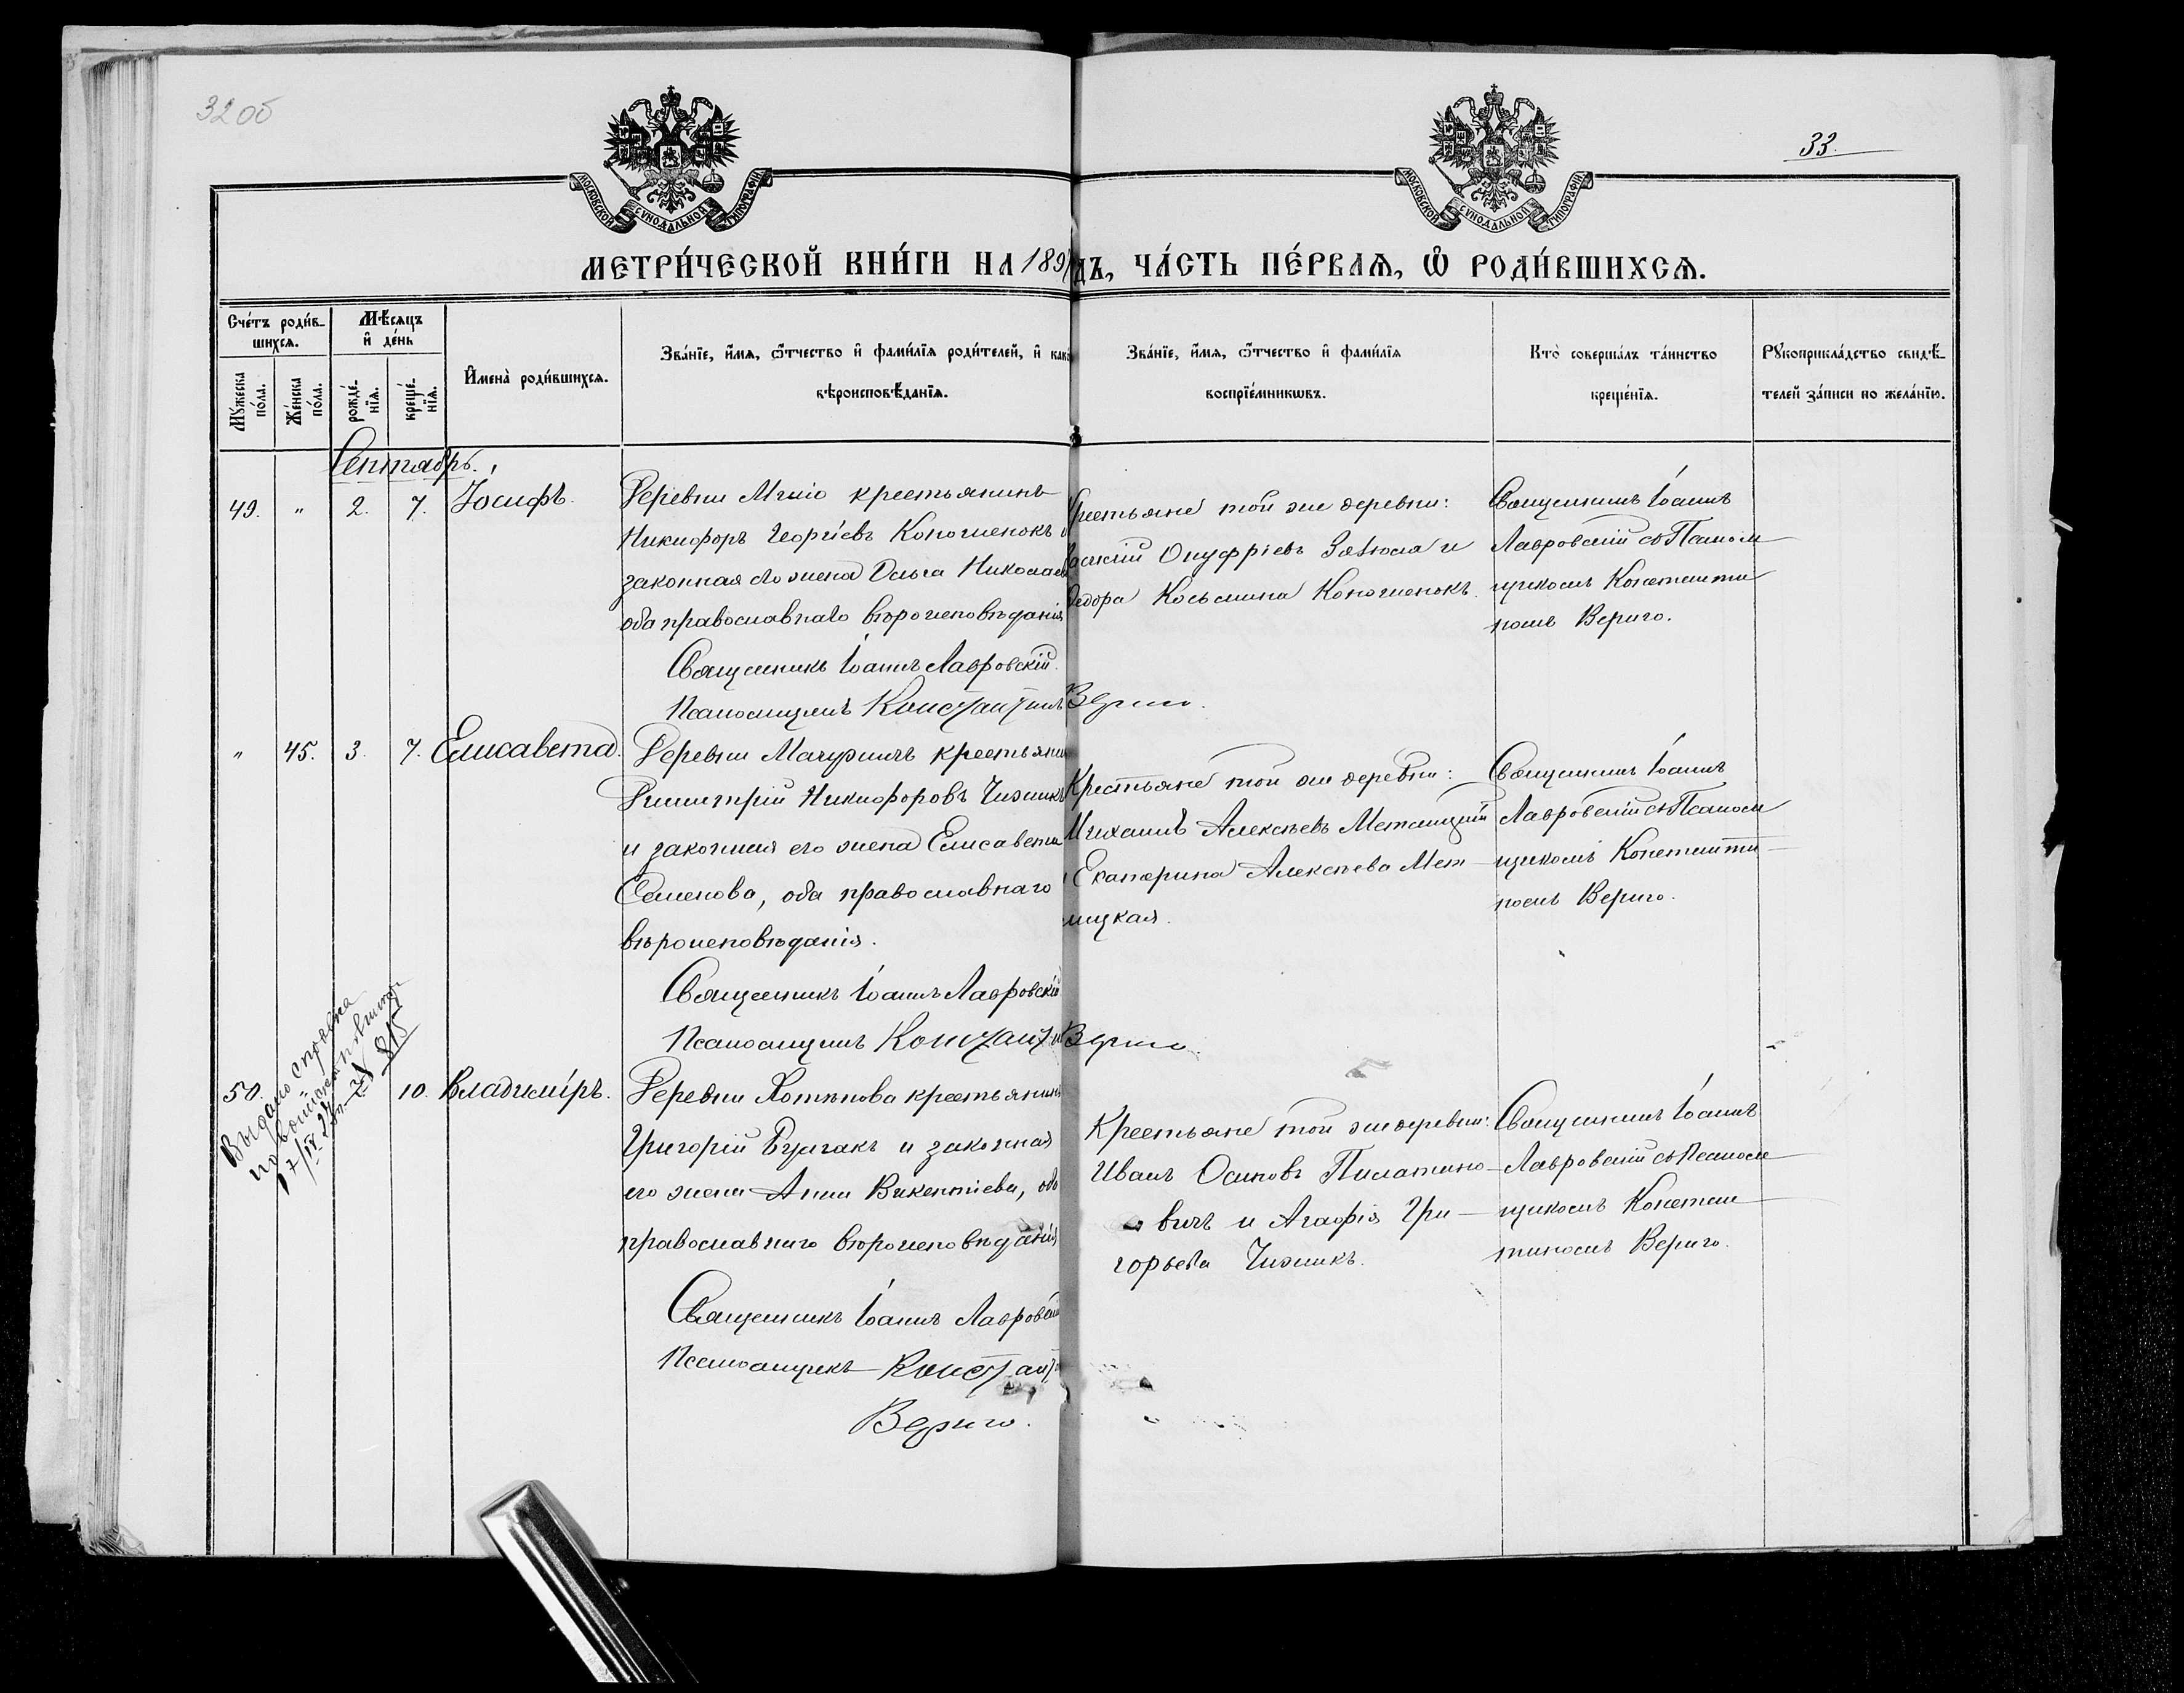 32 об
33.
МОСКОВСКОЙ СѴНОДАЛЬНОЙ ТИПОГРАФІИ
МОСКОВСКОЙ СѴНОДАЛЬНОЙ ТИПОГРАФІИ
МЕТРИ́ЧЕСКОЙ КНИ́ГИ НА 189
ДЪ, ЧА́СТЬ ПЕ́РВАЯ, Ѽ РОДИ́ВШИХСЯ.
Сче́тъ роди́в-
шихся.
Мѣ́сяцъ
и҆ де́нь
Мꙋ́жеска по́ла.
Же́нска по́ла.
рожде́-нїя.
креще́-нїя.
И҆мена̀ роди́вшихся.
Зва́нїе, и҆́мя, ѻ҆́тчество и҆ фами́лїя роди́телей, и҆ како
вѣроисповѣ́данїя.
Зва́нїе, и҆́мя, ѻ҆́тчество и҆ фами́лїя
воспрїе́мникѡвъ.
Кто̀ соверша́лъ та́инство
креще́нїя.
Рꙋкоприкла́дство свидѣ́-
телей за́писи по жела́нїю.
Сентябрь.
49. " 2. 7. Іосифъ.
Деревни крестьянинъ
Никифоръ Георгіевъ Кононенокъ и
законная его жена Ольга Николаева
оба православнаго вѣроисповѣданія
Священникъ Іоаннъ Лавровскій.
Псаломщикъ Константинъ Вериго.
Крестьяне той же деревни:
Онуфріевъ и
Ѳедора Косьмина Кононенокъ.
Священникъ Іоаннъ
Лавровскій съ Псалом
щикомъ Константи
номъ Вериго.
" 45. 3. 7. Елисавета.
Деревни крестьянинъ
Димитрій Никифоровъ Чижикъ
и законная его жена Елисавета
Семенова, оба православнаго
вѣроисповѣданія.
Священникъ Іоаннъ Лавровскій
Псаломщикъ Константинъ Вериго.
Крестьяне той же деревни:
Михаилъ Алексѣевъ Метлицкій
Екатерина Алексѣева Мет
лицкая.
Священникъ Іоаннъ
Лавровскій съ Псалом
щикомъ Константи
номъ Вериго.
Выдано справка
17/IV 28 № 815
50. 10. Владиміръ.
Деревни Хотѣнова крестьянинъ
Григорій Булгакъ и законная
его жена Анна Викентіева, оба
православнаго вѣроисповѣданія
Священникъ Іоаннъ Лавровскій
Псаломщикъ Константинъ
Вериго.
Крестьяне той же деревни:
Иванъ Осиповъ Пилатино-
вичъ и Агафія Гри-
горьева Чижикъ.
Священникъ Іоаннъ
Лавровскій съ Псалом
щикомъ Констан
тиномъ Вериго.